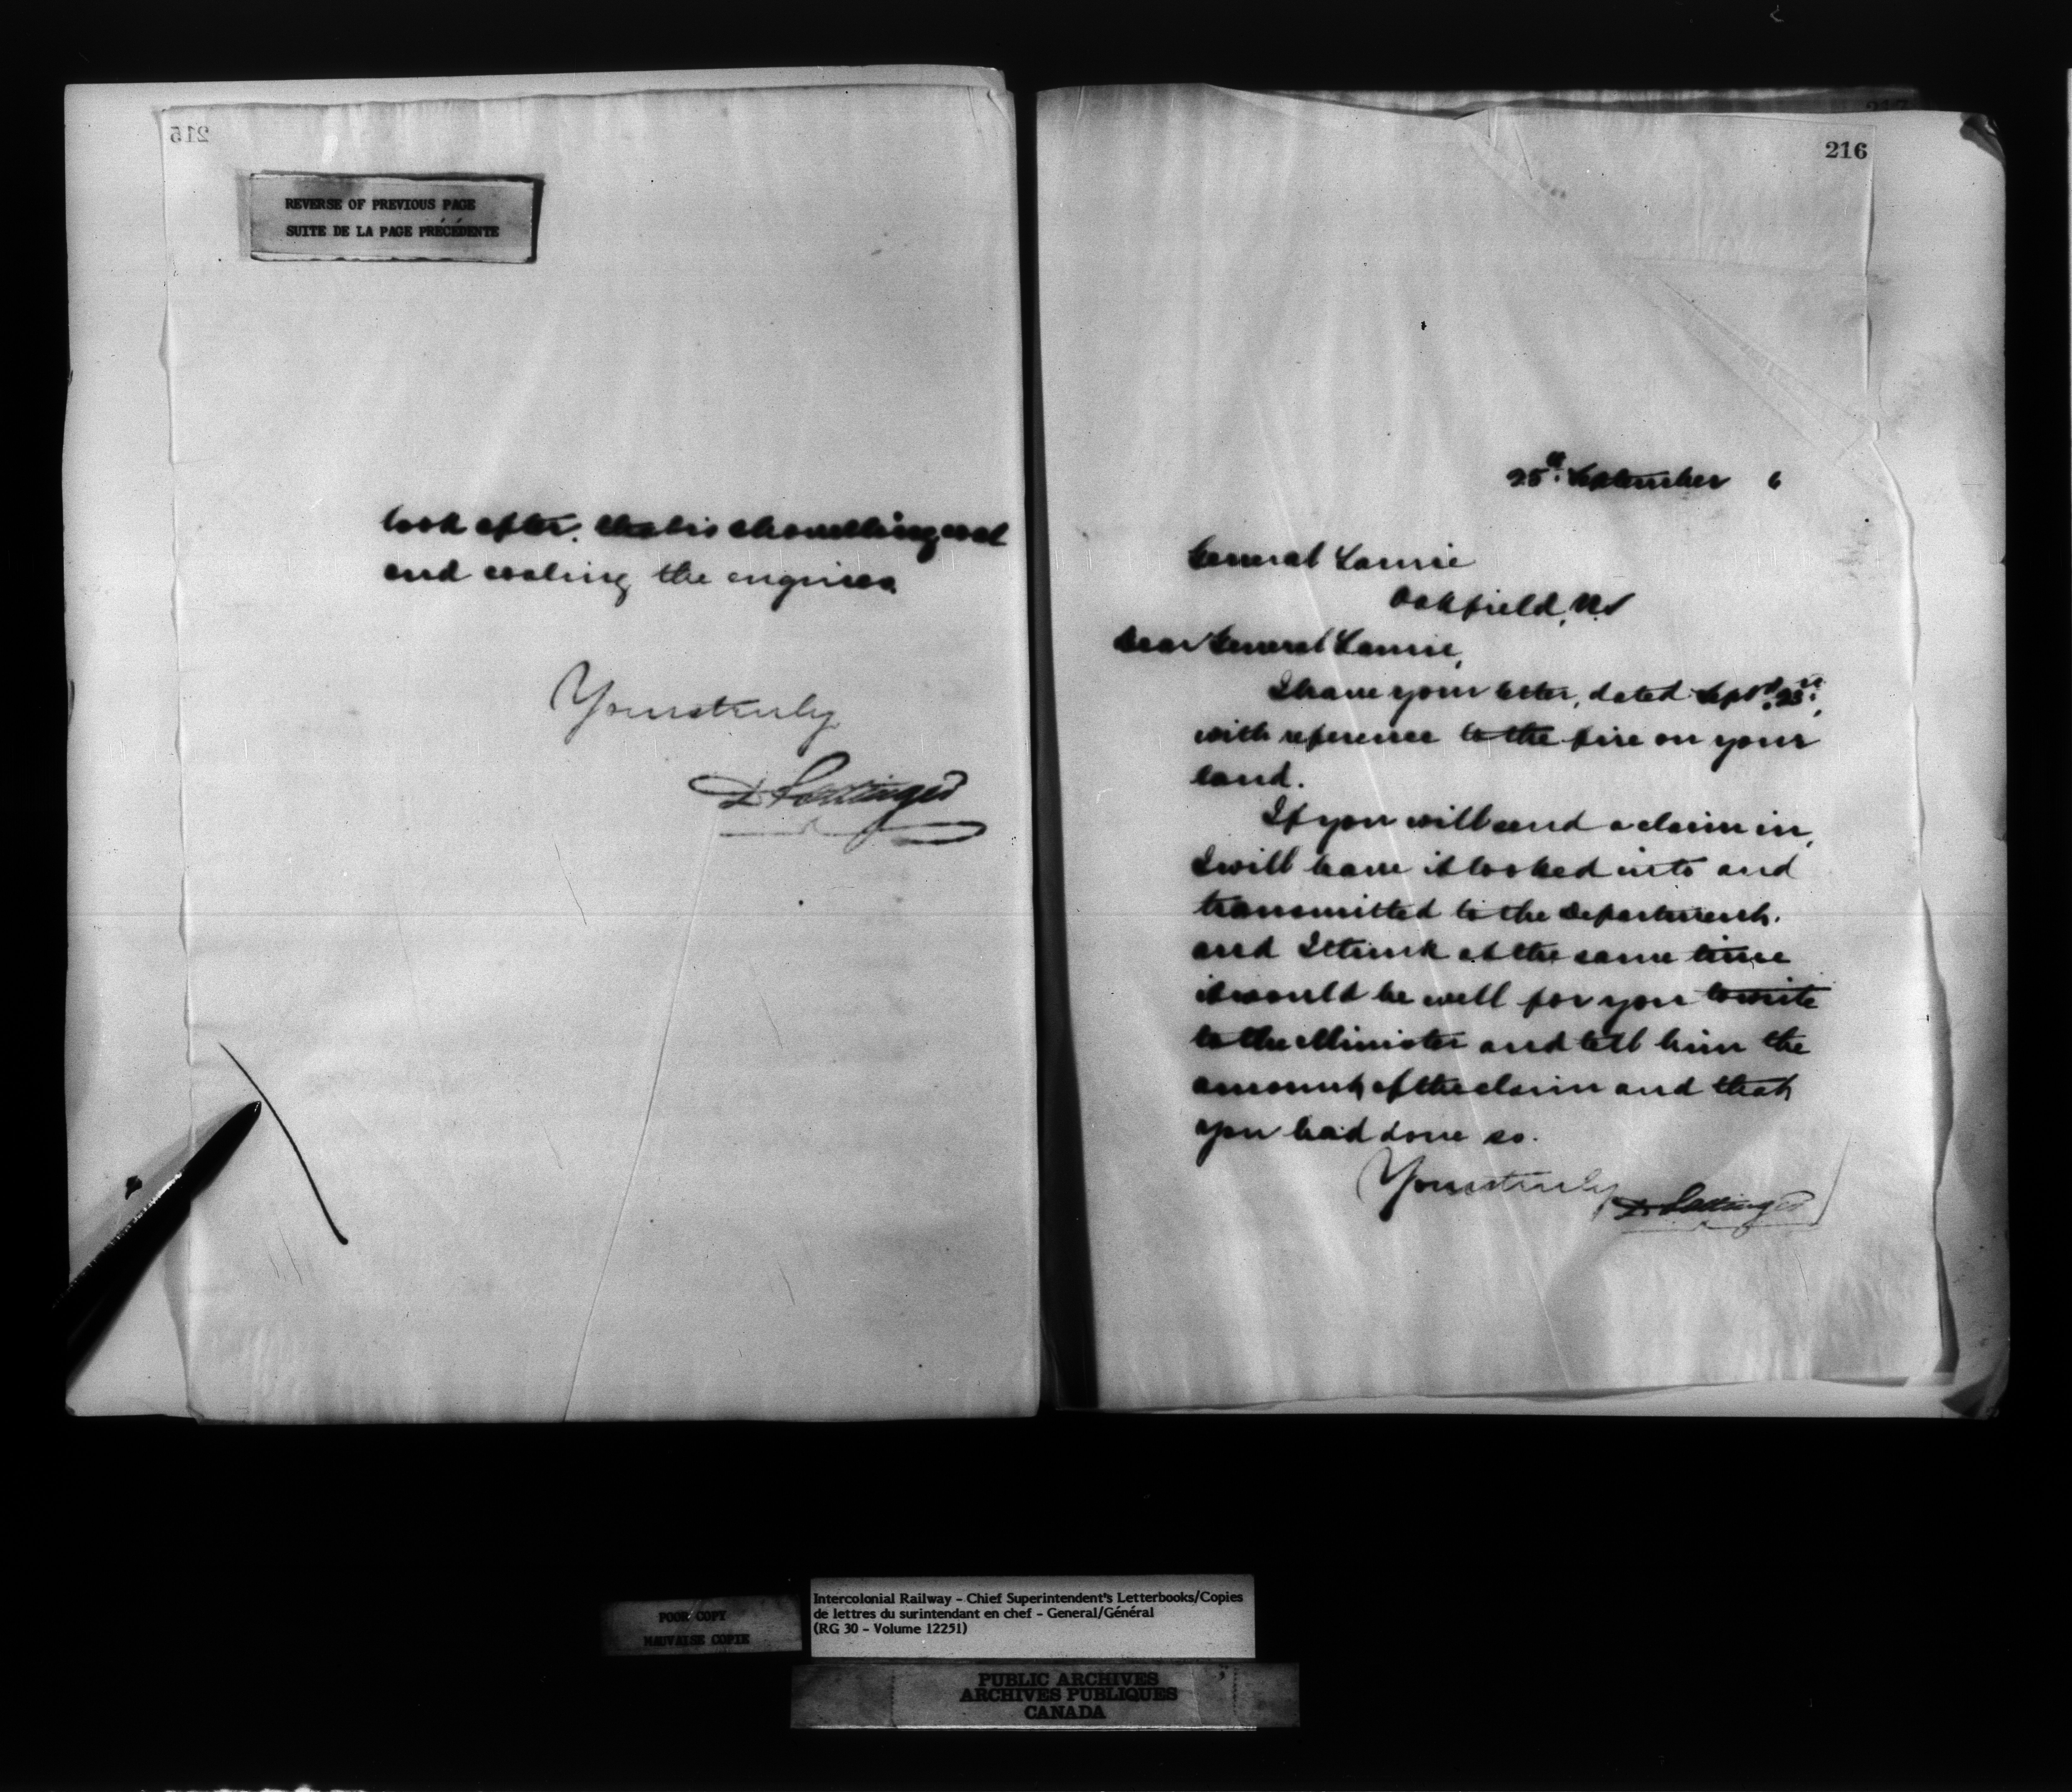 215
REVERSE OF PREVIOUS PAGE
SUITE DE LA PAGE PRÉCÉDENTE
look after. that is shovelling coal
and coaling the engines.
Yours truly
D Pottinger
216
25th September 6
General Laurie
Oakfield, N.S
Dear General Laurie,
I have your letter, dated Sept.
with reference to the fire on your
land.
If you will send a claim in,
I will have it looked into and
transmitted to the Department.
and I think at the same time
it would be well for you to write
to the Minister and tell him the
amount of the claim and that
you had done so.
Yours truly D Pottinger
POOR COPY
MAUVAISE COPIE
Intercolonial Railway - Chief Superintendent's Letterbooks/Copies
de lettres du surintendant en chef - General/Général
(RG 30 - Volume 12251)
PUBLIC ARCHIVES
ARCHIVES PUBLIQUES
CANADA